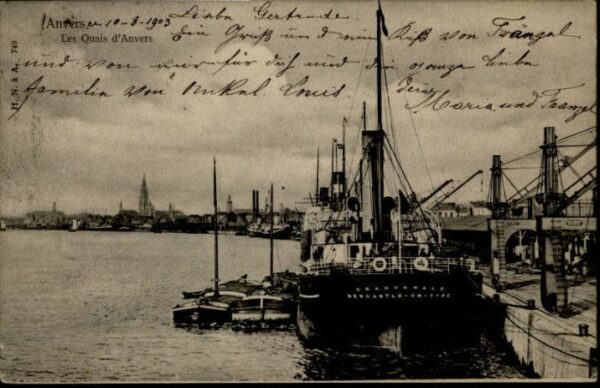 Anvers, 10-8-1903 Liebe Gertrude.
Les Quais d'Anvers
Ein Gruß und ein Kuß von Fränzel
und von mir für dich und die ganze liebe
familie von Onkel Louis. deine
Maria und Franzel
H. N. à A. 740
NEWCASTLE-ON-TYNE